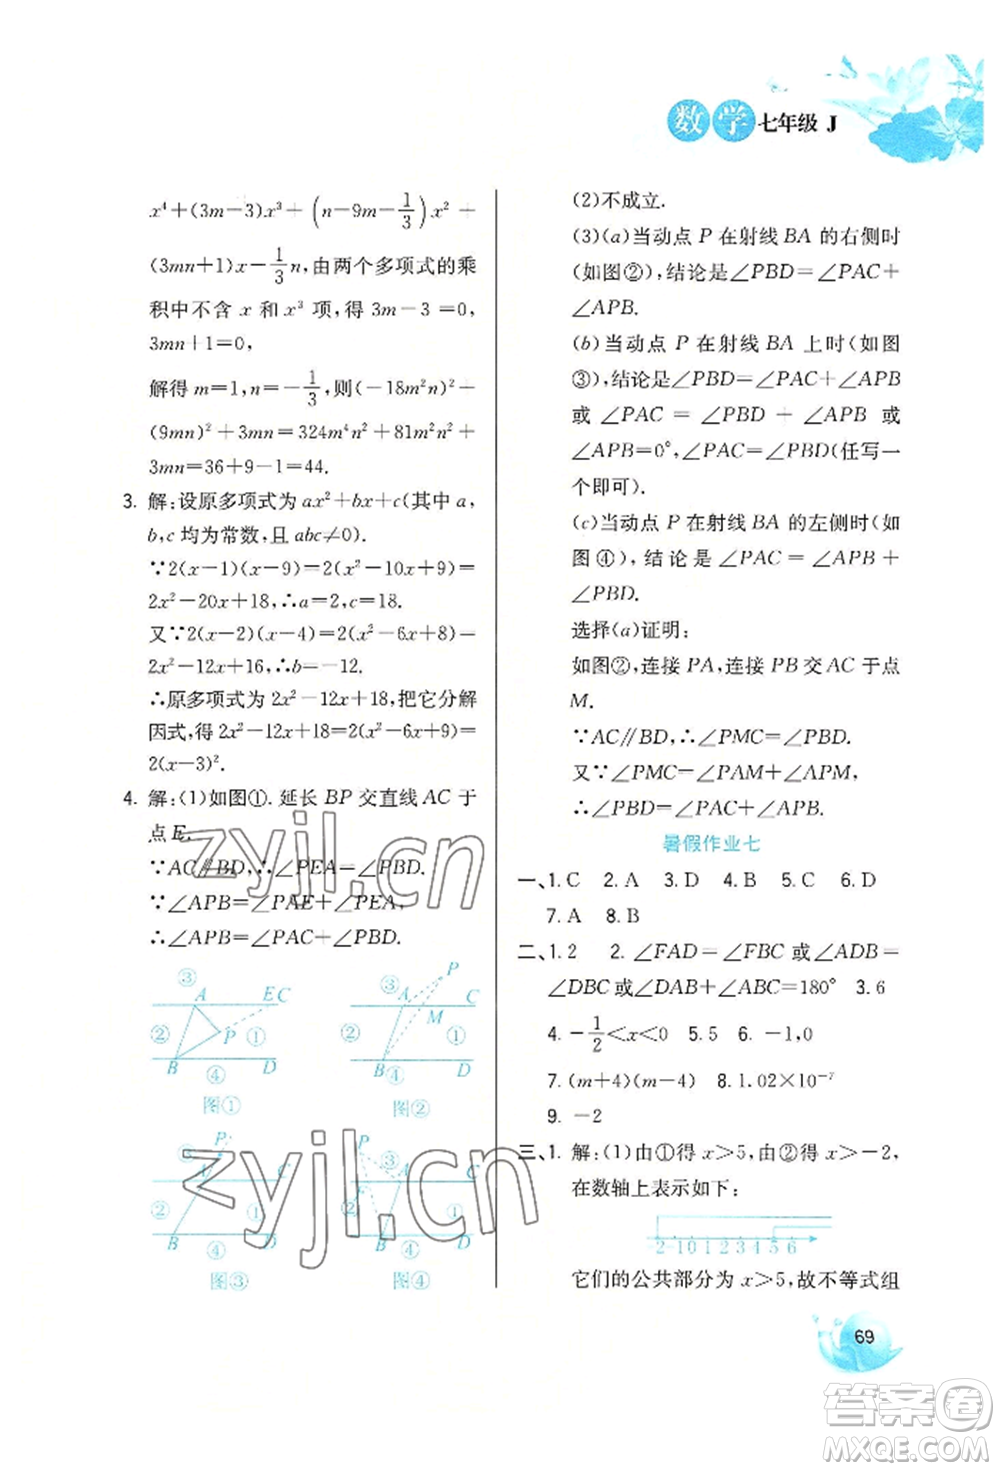 数学七年级 J
x⁴+(3m−3)x³+(n−9m−1/3)x²+
(3mn+1)x−1/3n,由两个多项式的乘
积中不含 x 和 x³ 项,得 3m−3=0,
3mn+1=0,
解得 m=1,n=−1/3,则(−18m²n)²+
(9mn)²+3mn=324m⁴n²+81m²n²+
3mn=36+9−1=44.
3. 解:设原多项式为 ax²+bx+c(其中 a,
b,c 均为常数,且 abc≠0).
∵2(x−1)(x−9)=2(x²−10x+9)=
2x²−20x+18,∴a=2,c=18.
又∵2(x−2)(x−4)=2(x²−6x+8)=
2x²−12x+16,∴b=−12.
∴原多项式为 2x²−12x+18,把它分解
因式,得 2x²−12x+18=2(x²−6x+9)=
2(x−3)².
4. 解:(1)如图①. 延长 BP 交直线 AC 于
点 E.
∵AC∥BD,∴∠PEA=∠PBD.
∵∠APB=∠PAE+∠PEA,
∴∠APB=∠PAC+∠PBD.
③ A E C
② P ①
B ④ D
图①
③ A P C
② M ①
B ④ D
图②
③ P
A C
② ①
B ④ D
图③
P ③
A C
② ①
B ④ D
图④
(2)不成立.
(3)(a)当动点 P 在射线 BA 的右侧时
(如图②),结论是∠PBD=∠PAC+
∠APB.
(b)当动点 P 在射线 BA 上时(如图
③),结论是∠PBD=∠PAC+∠APB
或 ∠PAC = ∠PBD + ∠APB 或
∠APB=0°,∠PAC=∠PBD(任写一
个即可).
(c)当动点 P 在射线 BA 的左侧时(如
图④),结论是∠PAC=∠APB+
∠PBD.
选择(a)证明:
如图②,连接 PA,连接 PB 交 AC 于点
M.
∵AC∥BD,∴∠PMC=∠PBD.
又∵∠PMC=∠PAM+∠APM,
∴∠PBD=∠PAC+∠APB.
暑假作业七
一、1. C 2. A 3. D 4. B 5. C 6. D
7. A 8. B
二、1. 2 2. ∠FAD=∠FBC 或∠ADB=
∠DBC 或∠DAB+∠ABC=180° 3. 6
4. −1/2<x<0 5. 5 6. −1,0
7. (m+4)(m−4) 8. 1.02×10⁻⁷
9. −2
三、1. 解:(1)由①得 x>5,由②得 x>−2,
在数轴上表示如下:
-2 -1 0 1 2 3 4 5 6
它们的公共部分为 x>5,故不等式组
69
zyjl.cn
zyjl.cn
答案卷
MXQE.COM